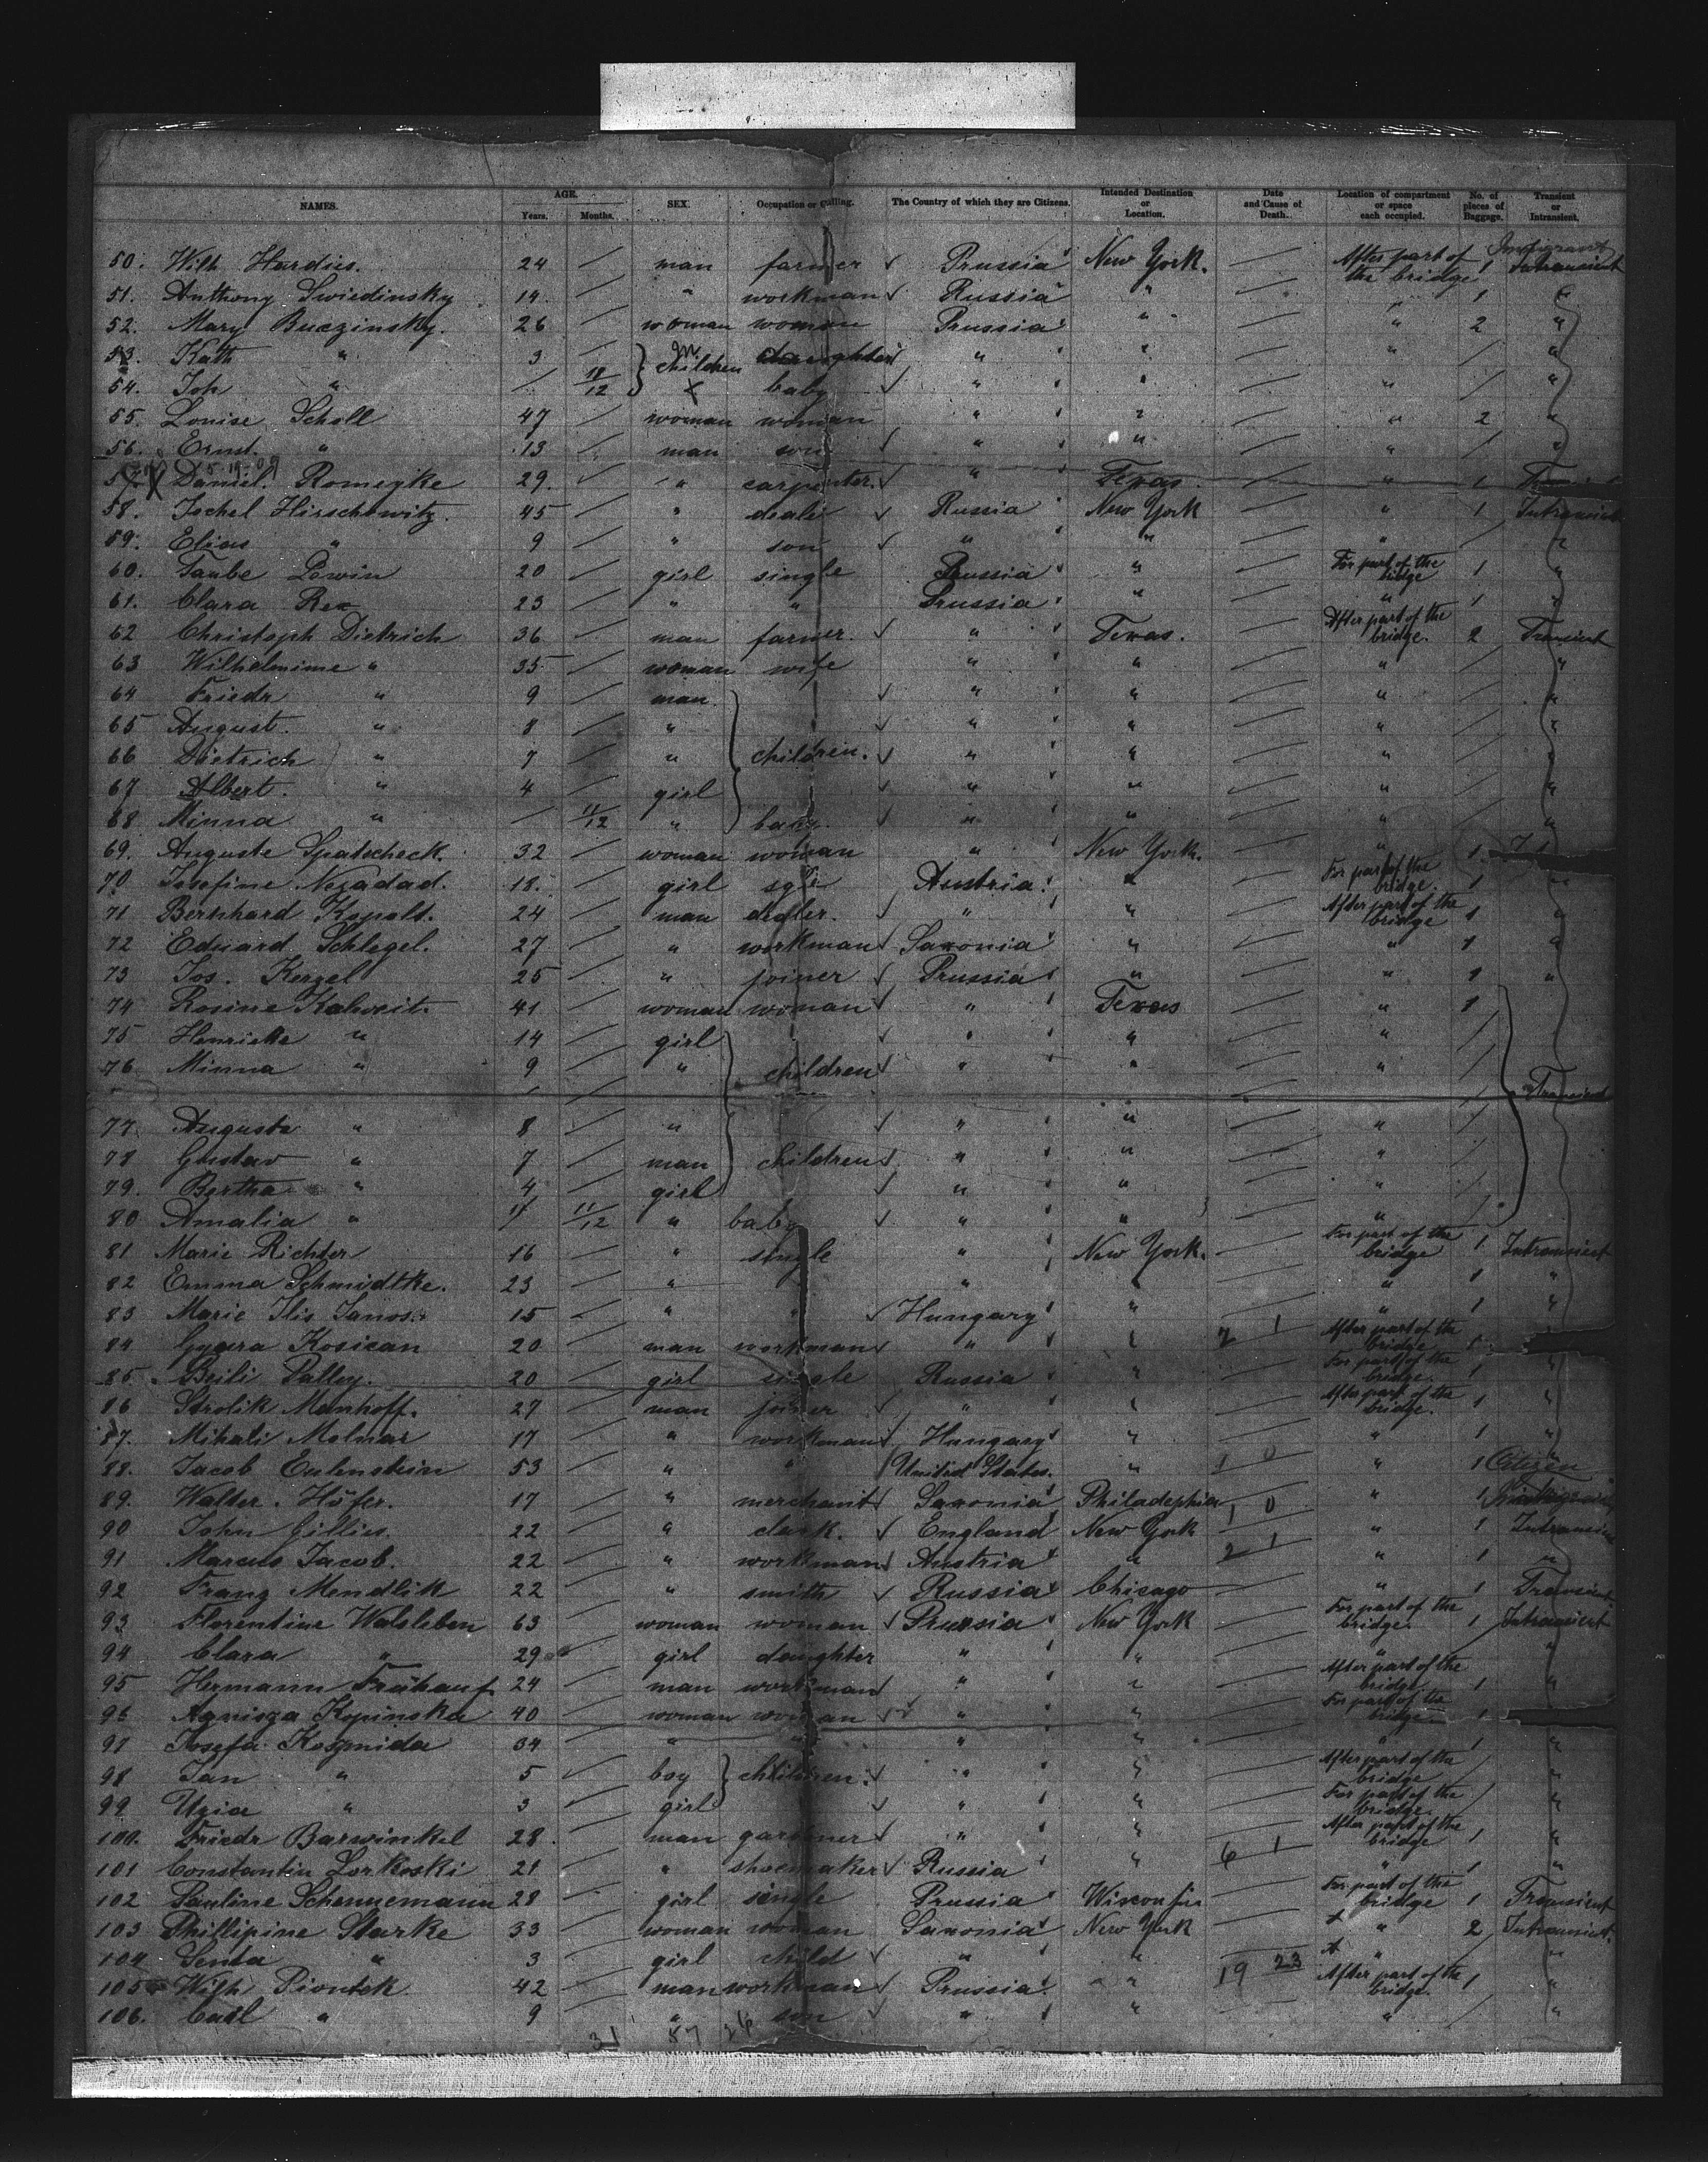 NAMES. AGE. Years. Months. SEX. Occupation or Calling. The Country of which they are Citizens. Intended Destination or Location. Date and Cause of Death. Location of compartment or space each occupied. No. of pieces of Baggage. Transient or Intransient.
50. Wilh Hardies. 24 — man farmer ✓ Prussia New York. — After part of the bridge 1 Immigrant Intransient
51. Anthony Swiedinsky 14. — " workman ✓ Russia " — " 1 "
52. Mary Buczinsky. 26 — woman woman Prussia " — " 2 "
53. Kath " 3 — children daughter ✓ " " — " / "
54. Joh " — 10/12 baby ✓ " " — " / "
55. Louise Scholl 47 — woman woman " " — " 2 "
56. Ernst. " 13 — man son ✓ " " — " / "
57. X 5-19-09 Daniel Romeyke 29. — " carpenter. ✓ " Texas. — " 1 Transient
58. Jochel Hirschowitz. 45 — " dealer ✓ Russia New York — " 1 Intransient
59. Elias " 9 — " son ✓ " " — " / "
60. Taube Lewin 20 — girl single Prussia " — For part of the bridge 1 "
61. Clara Rex 23 — " " Prussia " — " 1 "
62 Christoph Dietrich 36 — man farmer. ✓ " Texas. — After part of the bridge. 2 Transient
63 Wilhelmine " 35 — woman wife " " — " / "
64 Friedr " 9 — man ✓ " " — " / "
65 August. " 8 — " ✓ " " — " / "
66 Dietrich " 7 — " children. ✓ " " — " / "
67 Albert. " 4 — girl ✓ " " — " / "
68 Minna " — 11/12 " baby. ✓ " " — " / "
69. Auguste Spatscheck. 32 — woman woman " New York. — " 1
70 Josefine Nezadad. 18. — girl sgle Austria. " — For part of the bridge. 1 "
71 Bernhard Kopalt. 24 — man dealer. ✓ " " — After part of the bridge 1 "
72 Eduard Schlegel. 27 — " workman ✓ Saxonia " — " 1 "
73 Jos. Kerzel 25 — " joiner ✓ Prussia " — " 1 "
74 Rosine Kalweit. 41 — woman woman ✓ " Texas — " 1
75 Henriette " 14 — girl ✓ " " — " /
76 Minna " 9 — " children ✓ " " — " / Transient
77 Augusta " 8 — " ✓ " " — " /
78 Gustav " 7 — man children ✓ " " — " /
79. Bertha " 4 — girl ✓ " " — " /
80 Amalia " 11/12 " baby ✓ " " — " /
81 Marie Richter 16 — " single " New York. — For part of the bridge 1 Intransient
82 Emma Schmidtke. 23 — " " " — " 1 "
83 Marie Ilis Janos. 15 — " " ✓ Hungary " — " 1 "
84 Gyura Kosican 20 — man workman ✓ " " 2 1 After part of the bridge 1
85 Beili Palley. 20 — girl single Russia " — For part of the bridge. 1 "
86 Strolik Manhoff. 27 — man joiner ✓ " " — After part of the bridge. 1 "
87. Mihali Molnar 17 — " workman ✓ Hungary " — " 1 "
88. Jacob Eulenstein 53 — " " United States. " 1 0 " 1 Citizen
89. Walter. Höfer. 17 — " merchant ✓ Saxonia Philadephia 1 0 " 1
90 John Gillies. 22 — " clerk. ✓ England New York — " 1 Intransient
91 Marcus Jacob. 22 — " workman ✓ Austria " 2 1 " 1 "
92 Franz Mendlik 22 — " smith ✓ Russia Chicago — " 1 Transient
93 Florentine Walsleben 63 — woman woman ✓ Prussia New York — For part of the bridge. 1 Intransient
94 Clara " 29 girl daughter " " — " / "
95 Hermann Frühauf 24 — man workman ✓ " " — After part of the bridge 1 "
96 Agnisza Kopinska 40 — woman woman ✓ " " — For part of the bridge. 1
97 Josefa Kosmida 34 — " " " " — " 1 "
98 Jan " 5 — boy children. ✓ " " — After part of the bridge / "
99 Uzia " 3 — girl ✓ " " — For part of the bridge. / "
100. Friedr Barwinkel 28. — man gardener ✓ " " — After part of the bridge 1 "
101 Constantin Lorkoski 21 — " shoemaker ✓ Russia " 6 1 " 1 "
102 Pauline Schennemann 28 — girl single Prussia Wisconsin — For part of the bridge 1 Transient
103 Phillipine Starke 33 — woman woman Saxonia New York — " 2 Intransient.
104 Senta " 3 — girl child ✓ " " — " / "
105 Wilh Piontek 42 — man workman ✓ Prussia. " 19 23 After part of the bridge. 1 "
106. Carl " 9 — " son ✓ " " — " / "
31 57 26